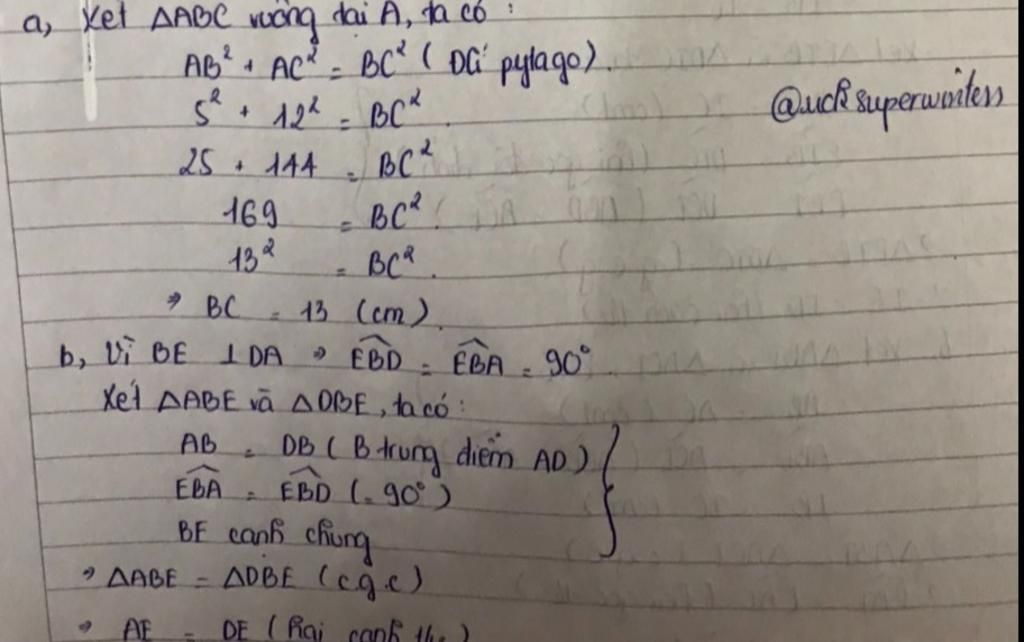 a, Xét ΔABC vuông tại A, ta có :
AB² + AC² = BC² ( ĐLí pytago).
5² + 12² = BC².
25 + 144 = BC²
169 = BC².
13² = BC².
⇒ BC = 13 (cm).
@uchsuperwinters
b, Vì BE ⊥ DA ⇒ EBD = EBA = 90°.
Xét ΔABE và ΔDBE, ta có :
AB = DB ( B trung điểm AD)
EBA = EBD (= 90°)
BE cạnh chung
⇒ ΔABE = ΔDBE ( c.g.c)
⇒ AE = DE ( hai cạnh